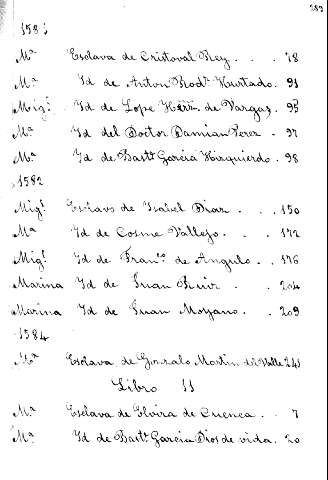 289
Mª Esclava de Cristoval Rey . . . 78
Mª Id de Anton Rodz Hurtado. 91
Migl Id de Lope Herrn de Vargas. 95
Mª Id del Doctor Damian Perez . 97
Mª Id de Bastn Garcia Hizquierdo. 98
1582
Migl Esclavo de Isabel Diaz . . . 150
Mª Id de Cosme Vallejo. . . 172
Migl Id de Franco de Angulo. . 176
Marina Id de Juan Ruiz . . 204
Marina Id de Juan Moyano. . 209
1584
Mª Esclava de Gonzalo Martin del Valle 241
Libro 11
Mª Esclava de Elvira de Cuenca . . 7
Mª Id de Bastn Garcia Dios de vida. 20